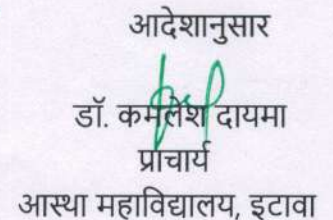 आदेशानुसार
डॉ. कमलेश दायमा
प्राचार्य
आस्था महाविद्यालय, इटावा